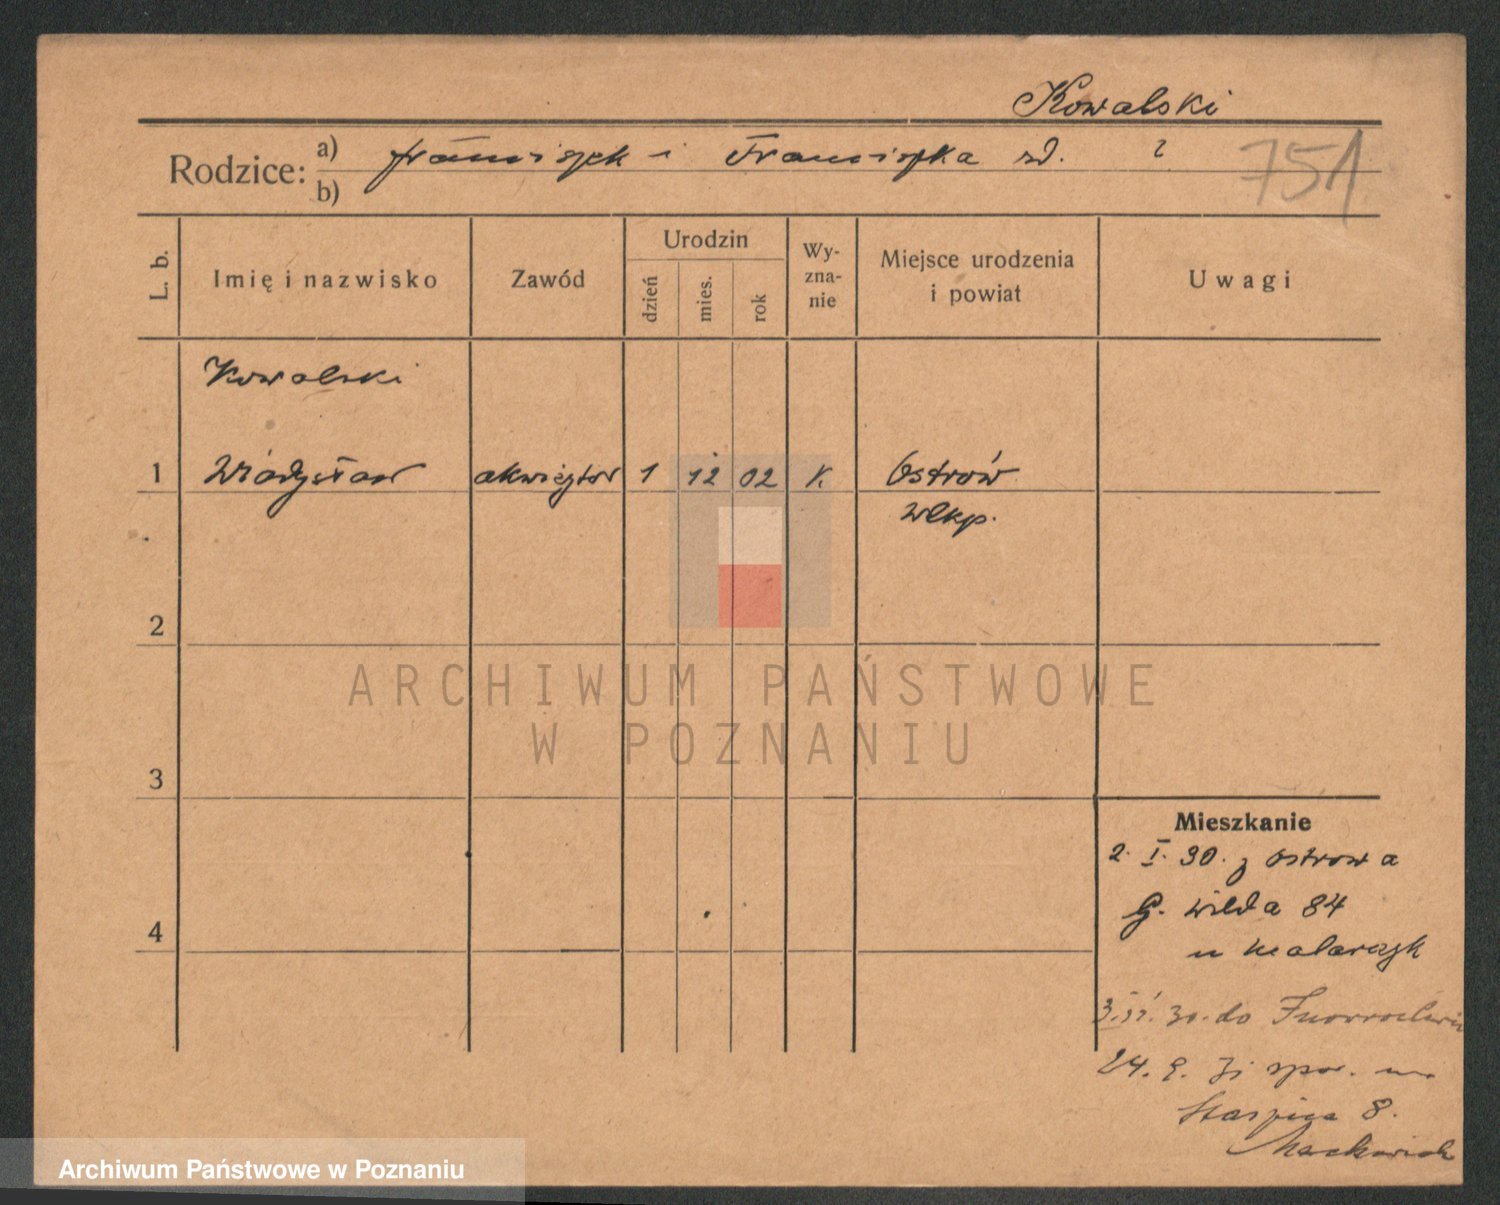 Kowalski
Rodzice: a) Franciszek i Franciszka zd. ?
b)
751
L. b.
Imię i nazwisko
Zawód
Urodzin
dzień
mies.
rok
Wy-
zna-
nie
Miejsce urodzenia
i powiat
Uwagi
Kowalski
1 Władysław akwizytor 1 12 02 k. Ostrów
wlkp.
2
ARCHIWUM PAŃSTWOWE
W POZNANIU
3
4
Mieszkanie
2. I. 30. z Ostrowa
G. Wilda 84
u Malarczyk
30. do Inowrocławia
24.
8.
Archiwum Państwowe w Poznaniu